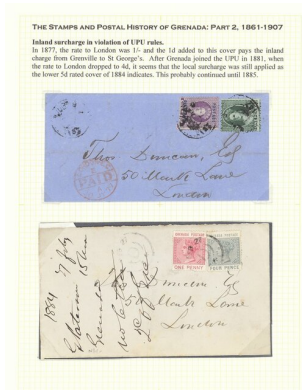 THE STAMPS AND POSTAL HISTORY OF GRENADA: PART 2, 1861-1907
Inland surcharge in violation of UPU rules.
In 1877, the rate to London was 1/- and the 1d added to this cover pays the inland
charge from Grenville to St George's. After Grenada joined the UPU in 1881, when
the rate to London dropped to 4d, it seems that the local surcharge was still applied as
the lower 5d rated cover of 1884 indicates. This probably continued until 1885.
PAID
Thos Duncan, Esq
50 Mark Lane
London
ONE PENNY
FOUR PENCE
Duncan
Mark Lane
London
1884
Grenada